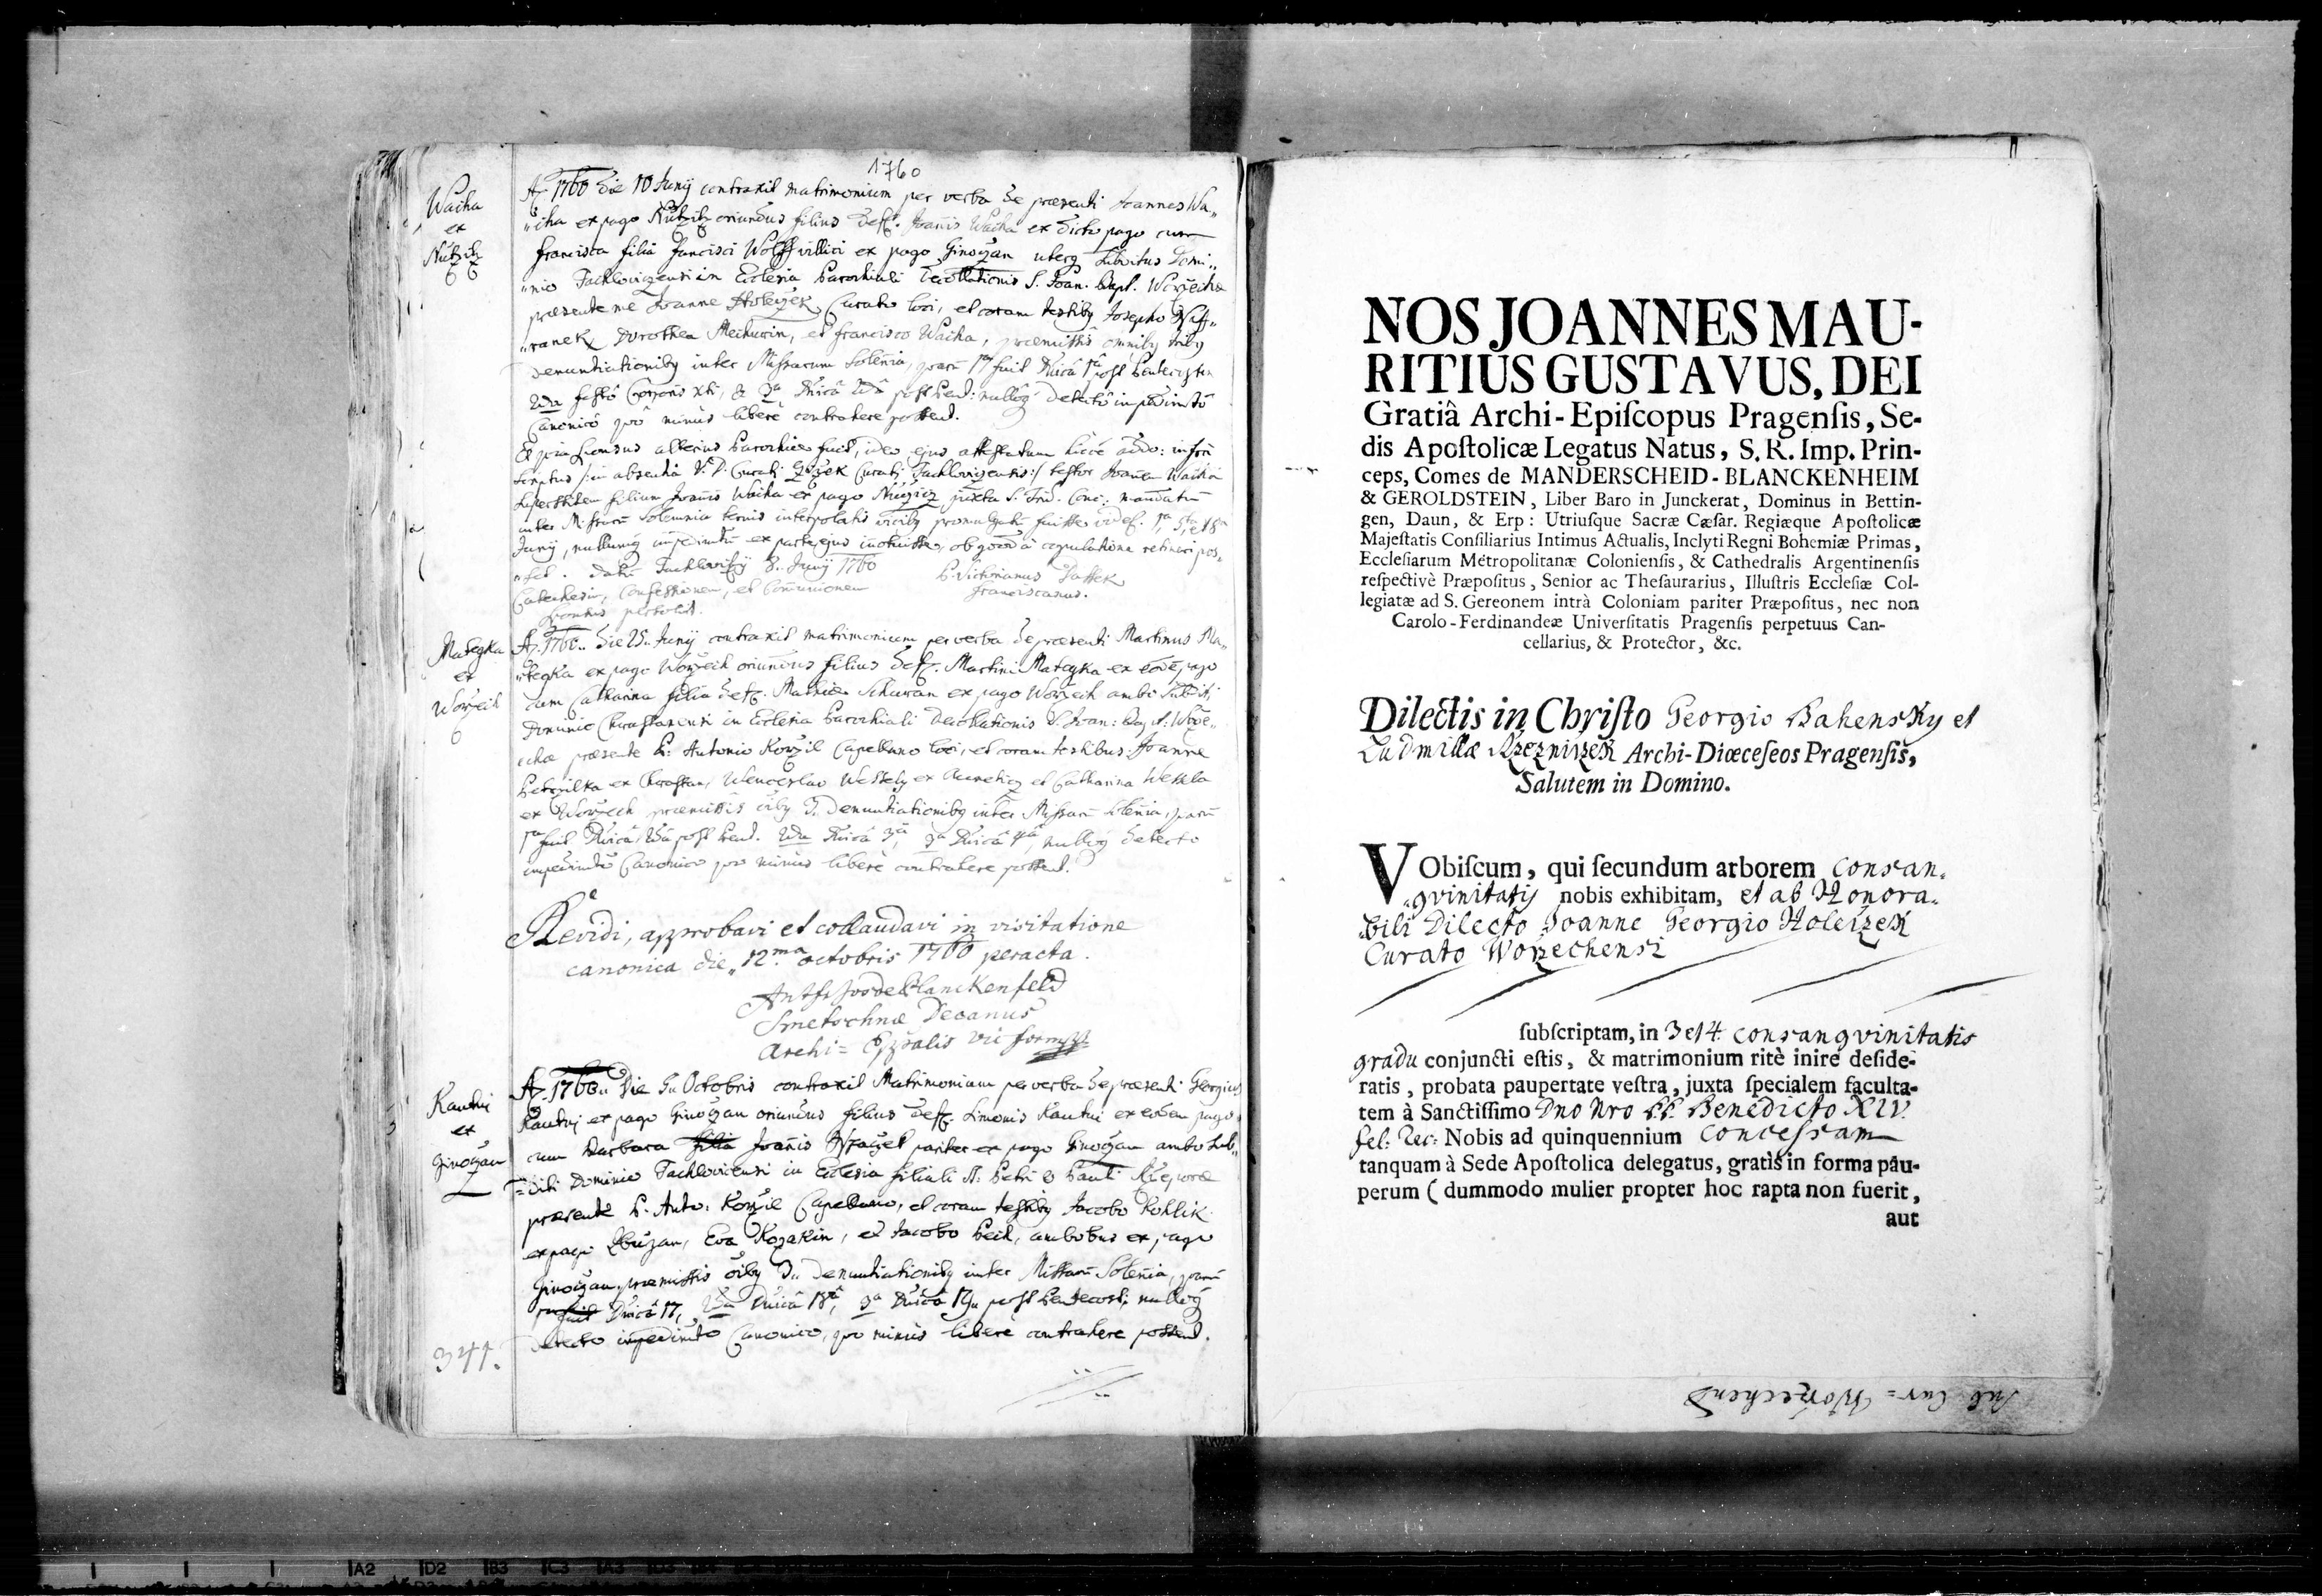 1760
Wacha
ex
Nutzitz
A. 1760 die 10 Junij contraxit matrimonium per verba de praesenti Joannes Wa„
„cha ex pago Nutzitz oriundus filius def. Joanis Wacha ex dicto pago cum
francisca filia francisci Wolff villici ex pago Ginoczan uterq subditus Domi„
„nio Tachloviczensi in Ecclesia Parochiali Decollationis S. Joan. Bapt. Worzecha
praesente me Joanne Holeczek Curato loci, et coram testibg Josepho
„ranek Dorothea Mechurin, et francisco Wacha, praemissis omnibg tribg
denuntiationibg inter Missarum Solenia, quaru 1a fuit Dnica 1a post Pentecosten
2da festo Corporis Xti, & 3a Dnica 2da post Pent: nulloq detecto impedimto
Canonico quo minus libere contrahere possent.
Et quia sponsus alterius Parochiae fuit, ideo ejus attestatum hicce addo: infra
scriptus /:in absentia V. D. Curati Curati Tachloviczensis:/ testor Joanem Wacha
filium Joanis Wacha ex pago Nuczicz juxta S. Trid. Conc: mandatum
inter Missaru Solemnia ternis interpolatis vicibg promulgatu fuisse videl. 1a, 5ta, et 8a
Junij, nullumq impedimtu ex parte ejus inotuisse, ob quod a copulatione retineri pos„
„sit. Datu Tachlovitzij 8. Junij 1760
P. Victorianus
Franciscanus.
Catechesin, Confessionem, et Communionem
Sponsus peregit.
Mategka
ex
Worzech
A. 1760.. die 25. Junij contraxit matrimonium per verba de praesenti Martinus Ma„
„tegka ex pago Worzech oriundus filius def. Martini Mategka ex eode pago
cum Catharina filia def. Mathiae Schuran ex pago Worzech ambo subditi
Dominio Chrastanensi in Ecclesia Parochiali Decollationis S. Joan: Bapt: Worze„
„cha praesente P. Antonio Korzil Capellano loci, et coram testibus: Joanne
Petrzilka ex Chrasstan, Wenceslao Wessely ex et Catharina Wessela
ex Worzech praemissis oibg 3. denuntiationibg inter Missaru Solenia, quaru
1a fuit Dnica 2da post Pent. 2da Dnica 3a, 3a Dnica 4a, nulloq detecto
impedimto Canonico quo minus libere contrahere possent.
Revidi, approbavi et collaudavi in visitatione
canonica die „12.ma octobris 1760 peracta.
de Planckenfeld
Smetschnae Decanus
Archi=
Kautni
ex
Ginoczan
A. 1760.. die 5. Octobris contraxit Matrimonium per verba de praesenti Georgius
Kautni ex pago Ginoczan oriundus filius def. Simonis Kautni ex eodem pago
cum Barbara filia Joanis pariter ex pago Ginoczan ambo sub„
=diti Dominio Tachlovicensi in Ecclesia filiali S. Petri & Pauli
praesente P. Anto: Korzil Capellano, et coram testibg Jacobo Rohlik
ex pago Zbuzan, Eva Kozakin, et Jacobo Pech, ambobus ex pago
Ginoczan praemissis oibg 3. denuntiationibg inter Missaru Solenia, quaru
1a fuit Dnica 17, 2da Dnica 18a, 3a Dnica 19. post Pentecost: nulloq
detecto impedimto Canonico, quo minus libere contrahere possent.
341.
NOS JOANNES MAU-
RITIUS GUSTAVUS, DEI
Gratiâ Archi-Epiſcopus Pragenſis, Se-
dis Apoſtolicæ Legatus Natus, S. R. Imp. Prin-
ceps, Comes de MANDERSCHEID-BLANCKENHEIM
& GEROLDSTEIN, Liber Baro in Junckerat, Dominus in Bettin-
gen, Daun, & Erp: Utriuſque Sacræ Cæſar. Regiæque Apoſtolicæ
Majeſtatis Conſiliarius Intimus Actualis, Inclyti Regni Bohemiæ Primas,
Eccleſiarum Métropolitanæ Colonienſis, & Cathedralis Argentinenſis
reſpectivè Præpoſitus, Senior ac Theſaurarius, Illuſtris Eccleſiæ Col-
legiatæ ad S. Gereonem intrà Coloniam pariter Præpoſitus, nec non
Carolo-Ferdinandeæ Univerſitatis Pragenſis perpetuus Can-
cellarius, & Protector, &c.
Dilectis in Chriſto Georgio Bahensky et
Ludmilla Rzezniczek Archi-Diœceſeos Pragenſis,
Salutem in Domino.
VObiſcum, qui ſecundum arborem consan„
„gvinitatis nobis exhibitam, et ab Honora„
„bili Dilecto Joanne Georgio Holeczek
Curato Worzechensi
ſubſcriptam, in 3 et 4 consangvinitatis
gradu conjuncti eſtis, & matrimonium ritè inire deſide-
ratis, probata paupertate veſtra, juxta ſpecialem faculta-
tem à Sanctiſſimo Dno Nro PP. Benedicto XIV.
fel: Rec: Nobis ad quinquennium concessam
tanquam à Sede Apoſtolica delegatus, gratis in forma pau-
perum (dummodo mulier propter hoc rapta non fuerit,
aut
Sub Cur= Worzechens
A2 D2 B3 C3 A3